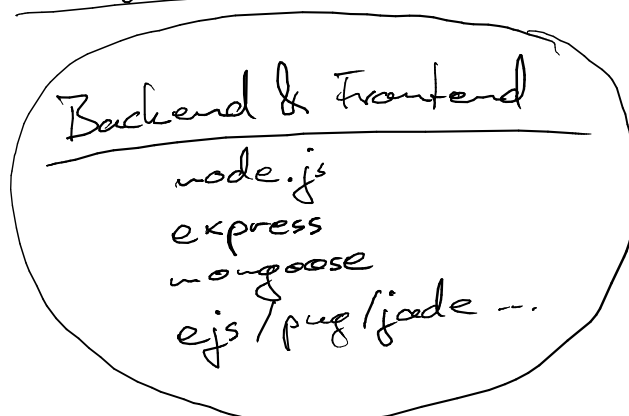 Backend & Frontend
node.js
express
mongoose
ejs/pug/jade ...